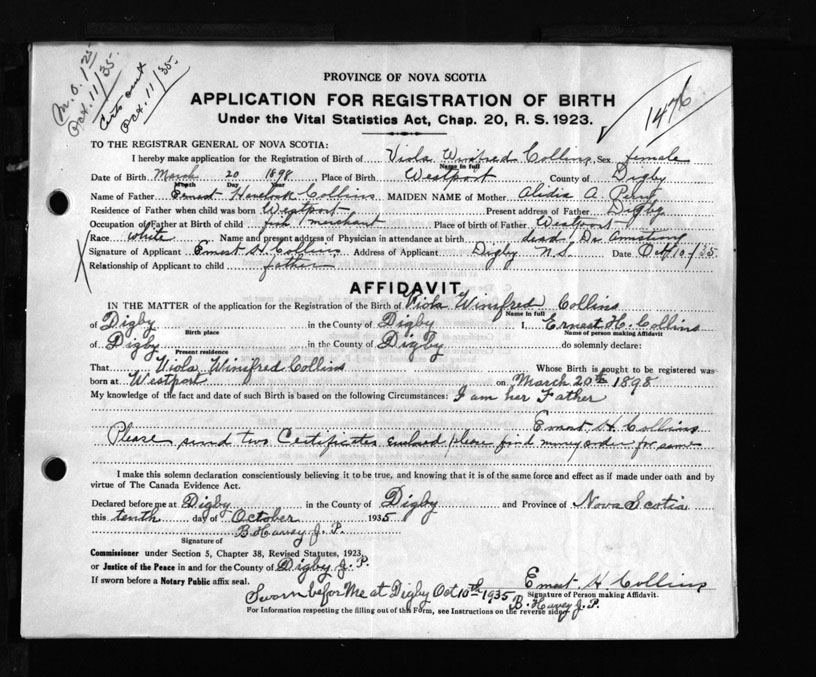 M.O. 1 25
Oct. 11/35.
Certs sent
Oct. 11/35.
1476
PROVINCE OF NOVA SCOTIA
APPLICATION FOR REGISTRATION OF BIRTH
Under the Vital Statistics Act, Chap. 20, R. S. 1923.
TO THE REGISTRAR GENERAL OF NOVA SCOTIA:
I hereby make application for the Registration of Birth of Viola Winifred Collins Sex female
Name in full
Date of Birth March 20 1898 Place of Birth Westport County of Digby
Month Day Year
Name of Father Ernest Havelock Collins MAIDEN NAME of Mother Alidia A.
Residence of Father when child was born Westport Present address of Father Digby
Occupation of Father at Birth of child fish merchant Place of birth of Father Westport
Race white Name and present address of Physician in attendance at birth dead Dr. Armstrong
Signature of Applicant Ernest H Collins Address of Applicant Digby N.S. Date Oct 10/35
Relationship of Applicant to child father
AFFIDAVIT
IN THE MATTER of the application for the Registration of the Birth of Viola Winifred Collins
Name in full
of Digby in the County of Digby I, Ernest H. Collins
Birth place Name of person making Affidavit
of Digby in the County of Digby do solemnly declare:
Present residence
That Viola Winifred Collins Whose Birth is sought to be registered was
born at Westport on March 20th 1898
My knowledge of the fact and date of such Birth is based on the following Circumstances: I am her Father
Ernest H. Collins
Please send two Certificates Enclosed please find money order for same
I make this solemn declaration conscientiously believing it to be true, and knowing that it is of the same force and effect as if made under oath and by
virtue of The Canada Evidence Act.
Declared before me at Digby in the County of Digby and Province of Nova Scotia
this tenth day of October 1935
B. Harvey J. P.
Signature of
Commissioner under Section 5, Chapter 38, Revised Statutes, 1923,
or Justice of the Peace in and for the County of Digby J. P.
If sworn before a Notary Public affix seal.
Ernest H Collins
Signature of Person making Affidavit.
Sworn before Me at Digby Oct 10th 1935
B. Harvey J. P.
For Information respecting the filling out of this Form, see Instructions on the reverse side.